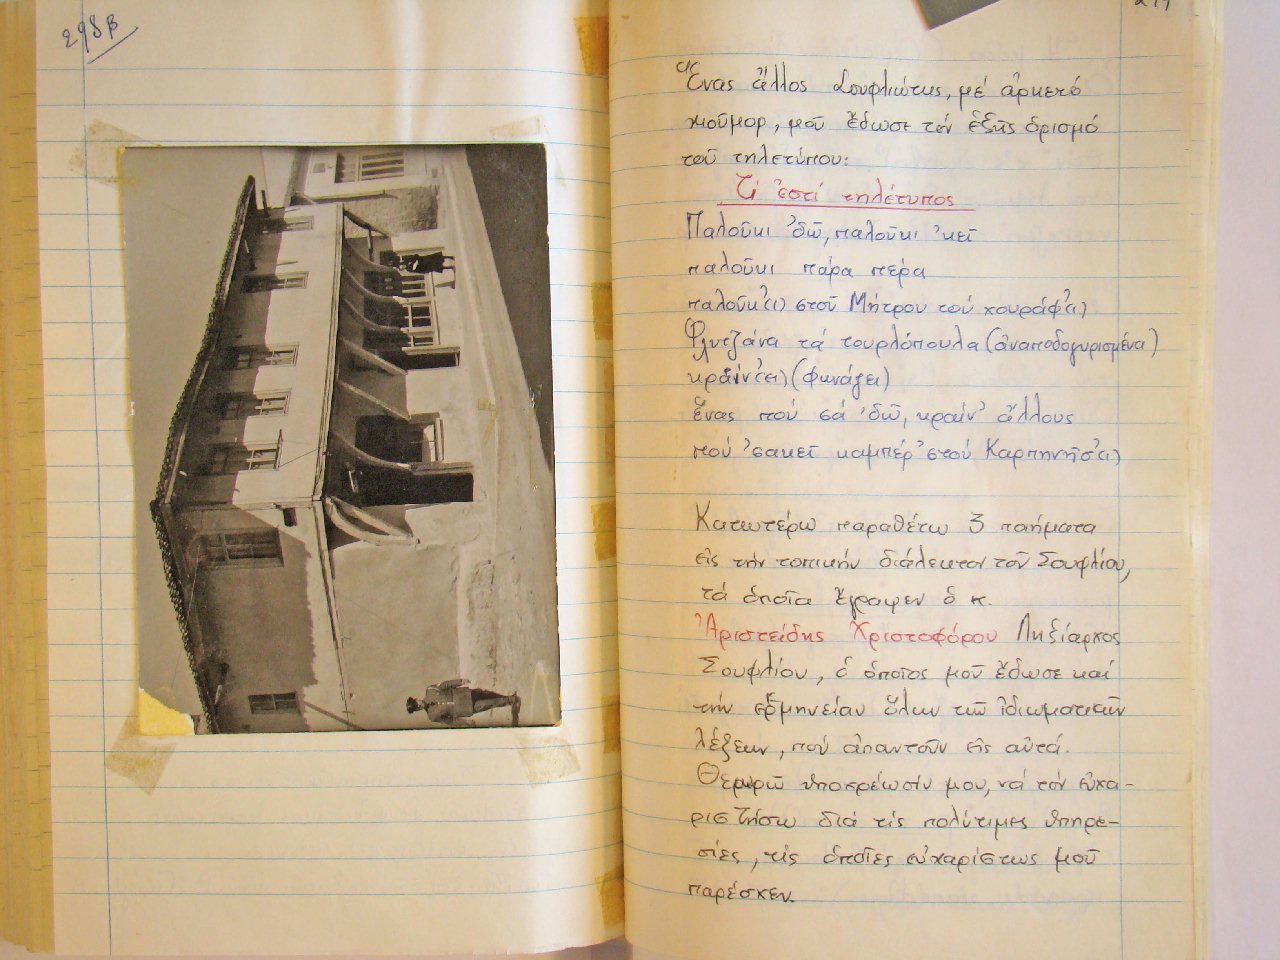 298β
Ἕνας ἄλλος Σουφλιώτης, μέ ἀρκετό
χιοῦμορ, μοῦ ἔδωσε τόν ἑξῆς ὁρισμό
τοῦ τηλετύπου:
Τί ἐστί τηλέτυπος
Παλοῦκι ἐδῶ, παλοῦκι ἐκεῖ
παλοῦκι πάρα πέρα
παλοῦκ(ι) στοῦ Μήτρου τού χουράφ(ι)
Φλυτζάνα τά τουρλόπουλα (ἀναποδογυρισμένα)
κράιν(ει) (φωνάζει)
ἕνας πού σά ἰδῶ, κραίν' ἄλλους
πού 'σακεῖ καμπέρ 'στού Καρπηνῆσ(ι)
Κατωτέρω παραθέτω 3 ποιήματα
εἰς τήν τοπικήν διάλεκτον τοῦ Σουφλίου,
τά ὁποῖα ἔγραψεν ὁ κ.
Ἀριστείδης Χριστοφόρου Ληξίαρχος
Σουφλίου, ὁ ὁποῖος μοῦ ἔδωσε καί
τήν ἑρμηνείαν ὅλων τῶν ἰδιωματικῶν
λέξεων, πού ἀπαντοῦν εἰς αὐτά.
Θεωρῶ ὑποχρέωσίν μου, νά τόν εὐχα-
ριστήσω διά τίς πολύτιμες ὑπηρε-
σίες, τίς ὁποῖες εὐχαρίστως μοῦ
παρέσχεν.